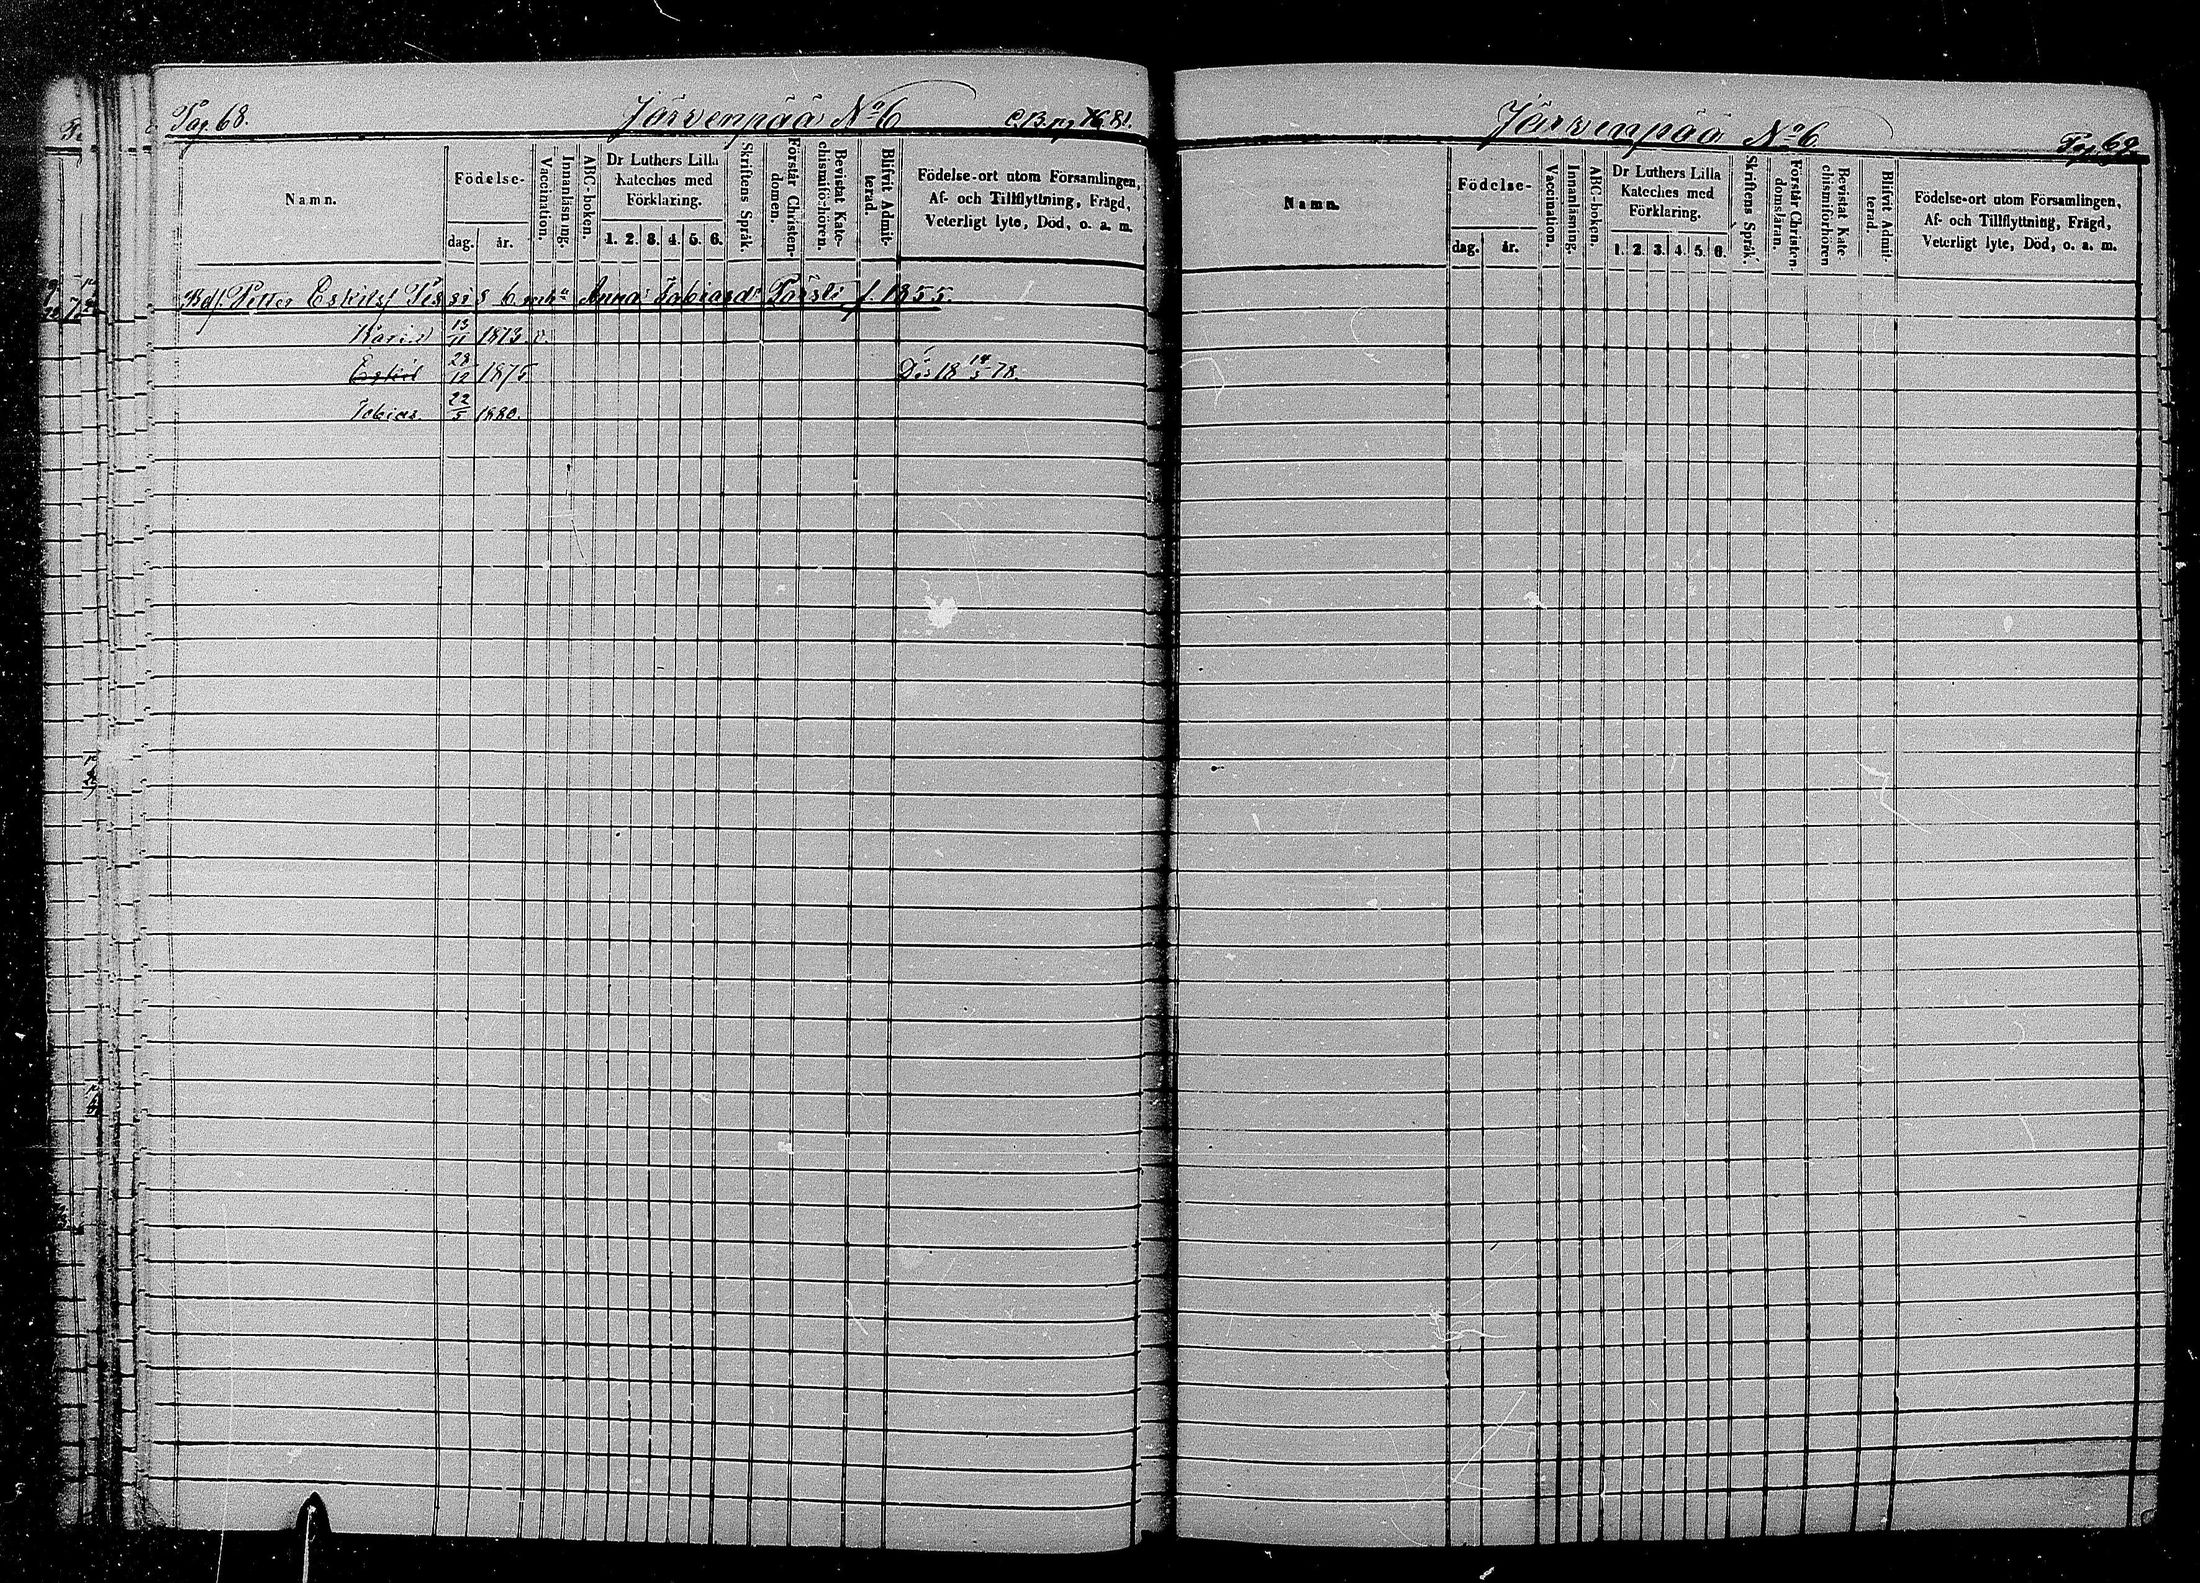 Pag. 68.
Järvenpää No 6
C.B. pag 81.
Namn.
Födelse-
dag.
år.
Vaccination.
Innanläsning.
ABC-boken.
Dr Luthers Lilla
Kateches med
Förklaring.
1. 2. 3. 4. 5. 6.
Skriftens Språk.
Förstår Christen-
domen.
Bevistat Kate-
chismiförhören.
Blifvit Admit-
terad.
Födelse-ort utom Församlingen,
Af- och Tillflyttning, Frägd,
Veterligt lyte, Död, o. a. m.
Petter Eskilsf Anna f. 1855.
Karin 13/11 1873. v.
Eskil 28/12 1875 Dös 18 14/5 78.
Tobias. 22/5 1880.
Järvenpää No 6
Pag. 69.
Namn.
Födelse-
dag.
år.
Vaccination.
Innanläsning.
ABC-boken.
Dr Luthers Lilla
Kateches med
Förklaring.
1. 2. 3. 4. 5. 6.
Skriftens Språk.
Förstår Christen-
domsläran.
Bevistat Kate
chismiförhören
Blifvit Admit-
terad.
Födelse-ort utom Församlingen,
Af- och Tillflyttning, Frägd,
Veterligt lyte, Död, o. a. m.